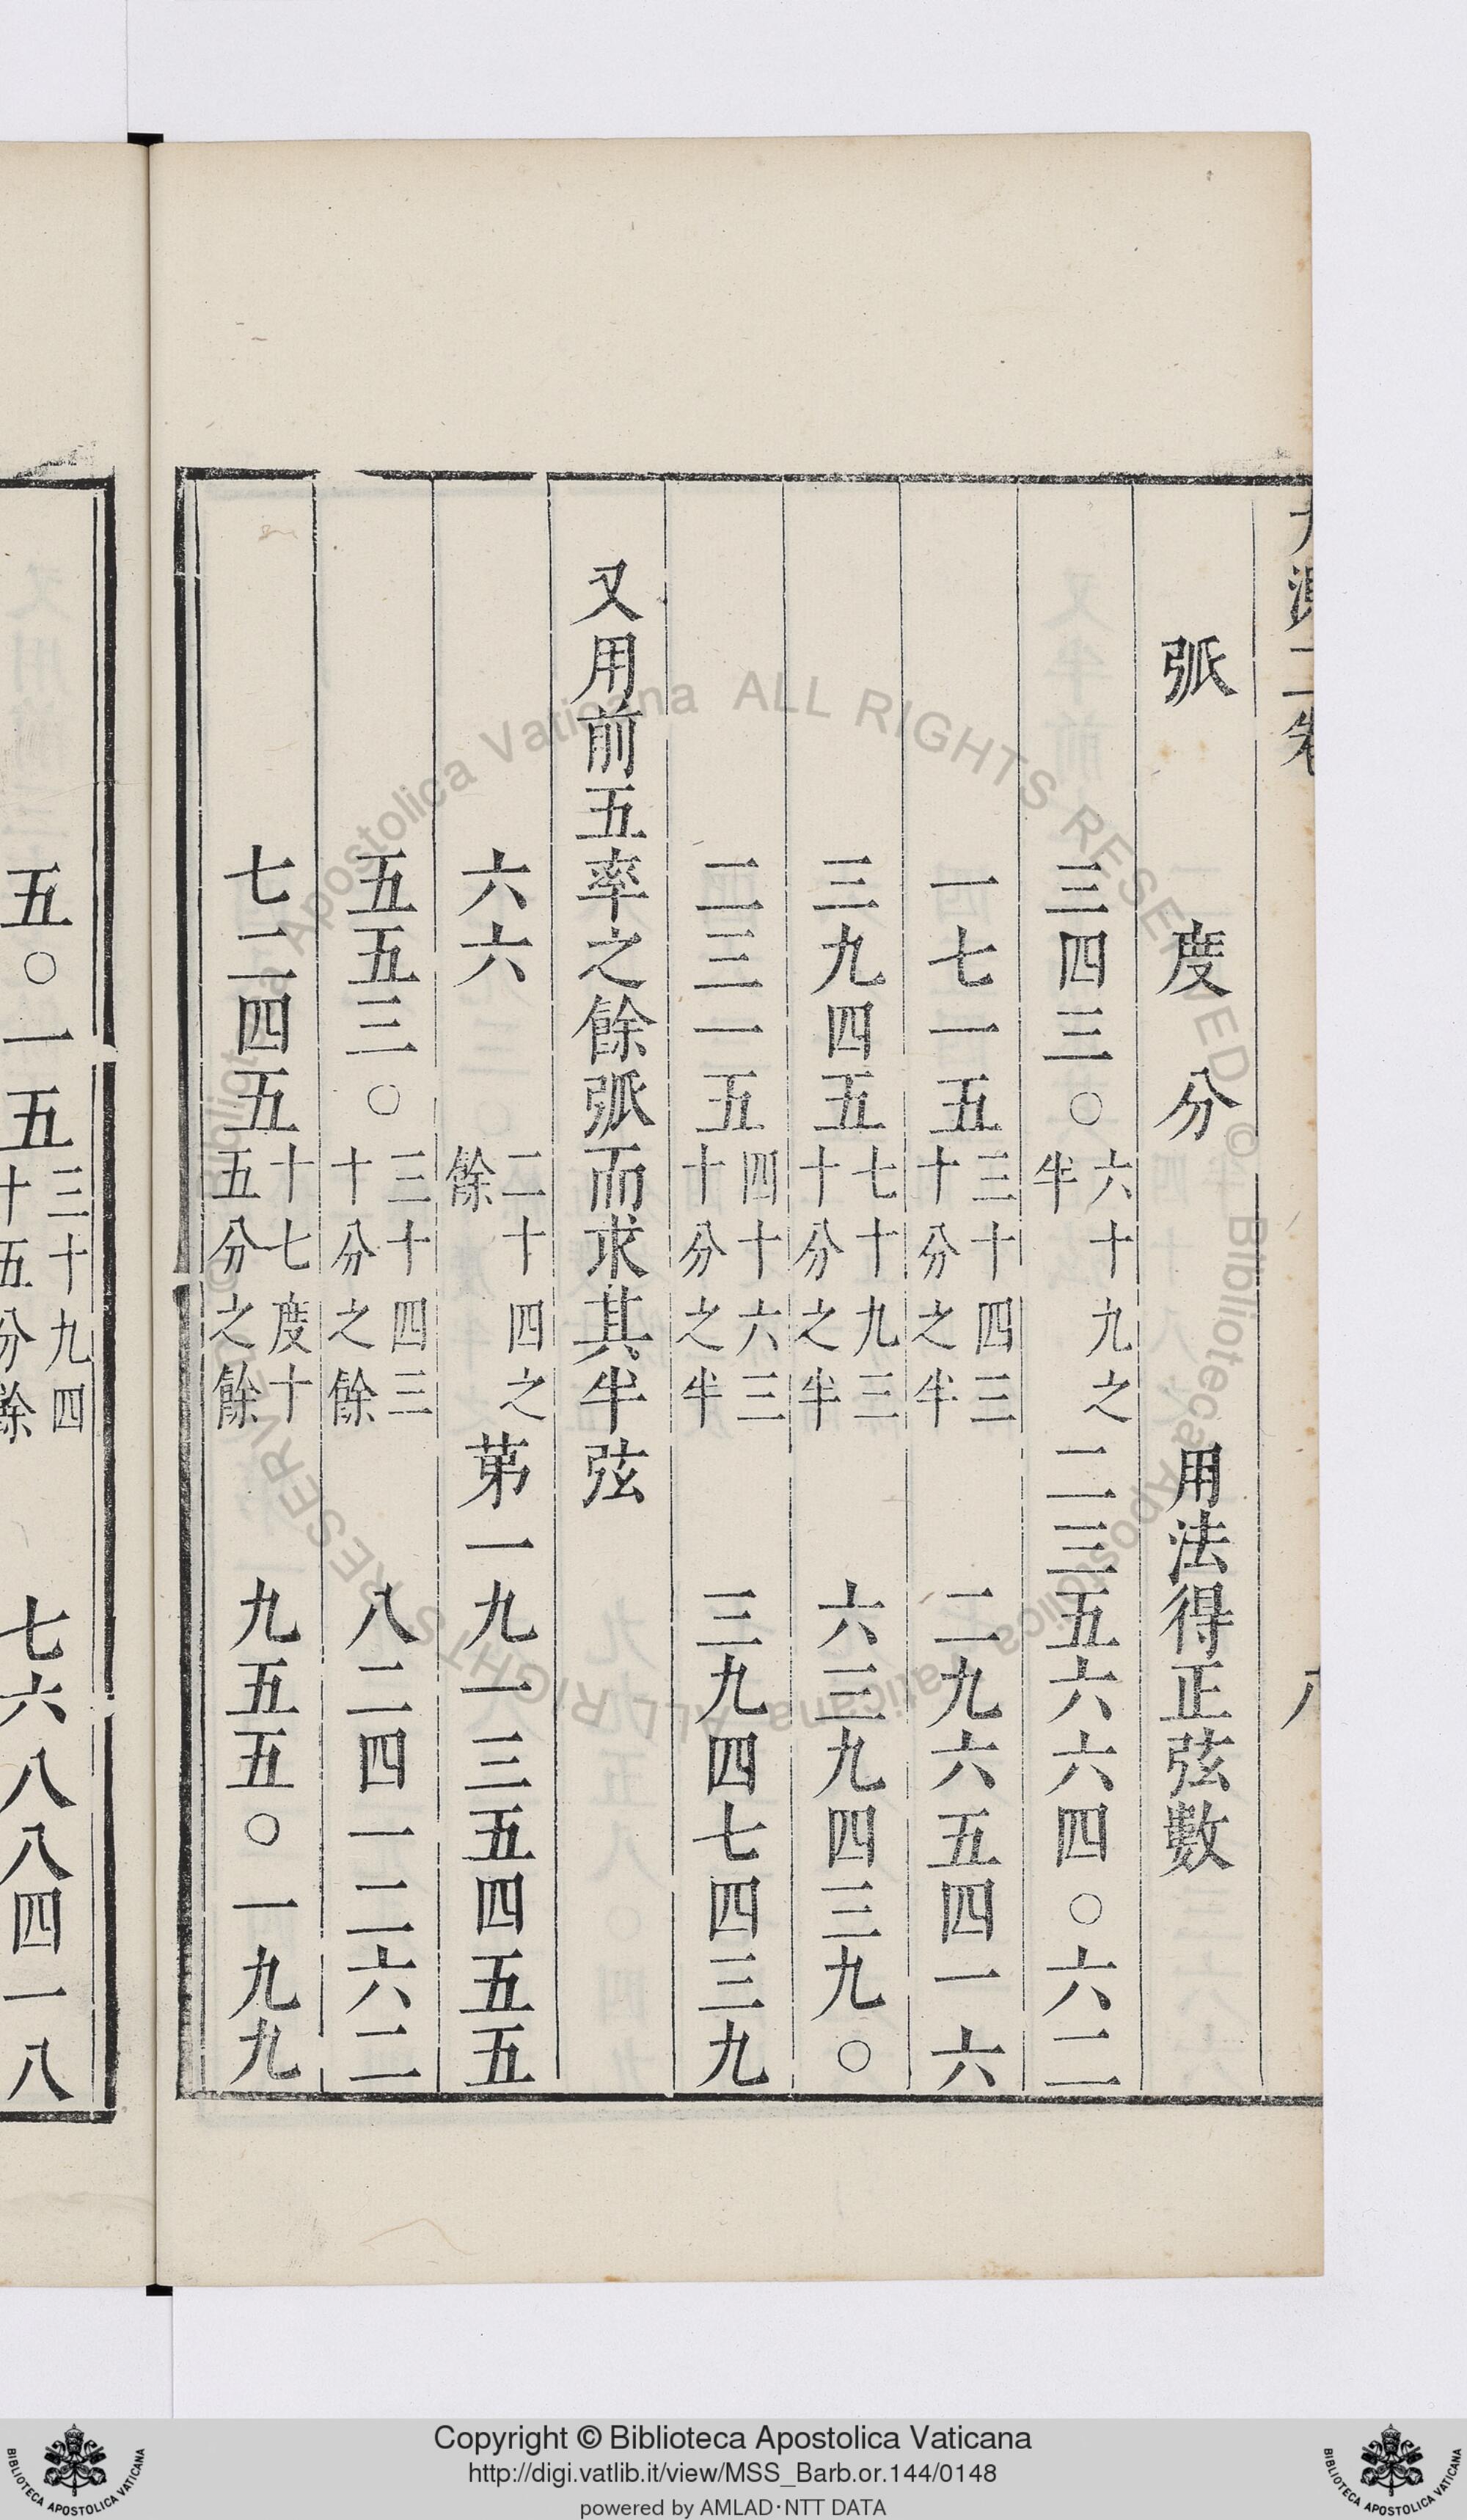 弧 度 分 用法得正弦數
三四三〇 六十九之半 二三五六六四〇六二
一七一五 三十四三十分之半 二九六五四一六
三九四五 七十九三十分之半 六三九四三九〇
二三一五 四十六三十分之半 三九四七四三九
又用前五率之餘弧而求其半弦
六六 二十四之餘 第一九一三五四五五
五五三〇 三十四三十分之餘 八二四一二六二
七二四五 十七度十五分之餘 九五五〇一九九
五〇一五 三十九四十五分餘 七六八八四一八
Copyright © Biblioteca Apostolica Vaticana
http://digi.vatlib.it/view/MSS_Barb.or.144/0148
powered by AMLAD·NTT DATA